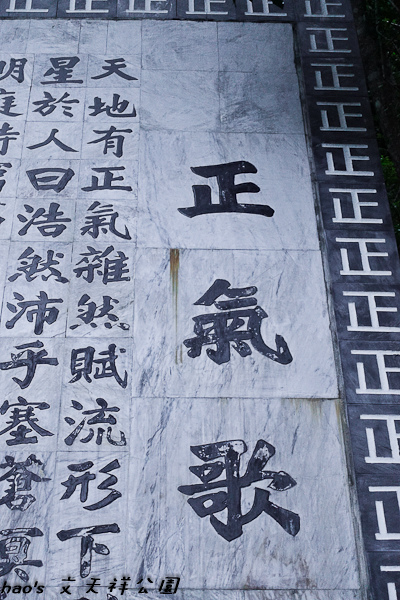 正氣歌
天地有正氣雜然賦流形下
星於人曰浩然沛乎塞蒼冥
明庭時
正正正正正正正正正正正正正正正正
hao's 文天祥公園